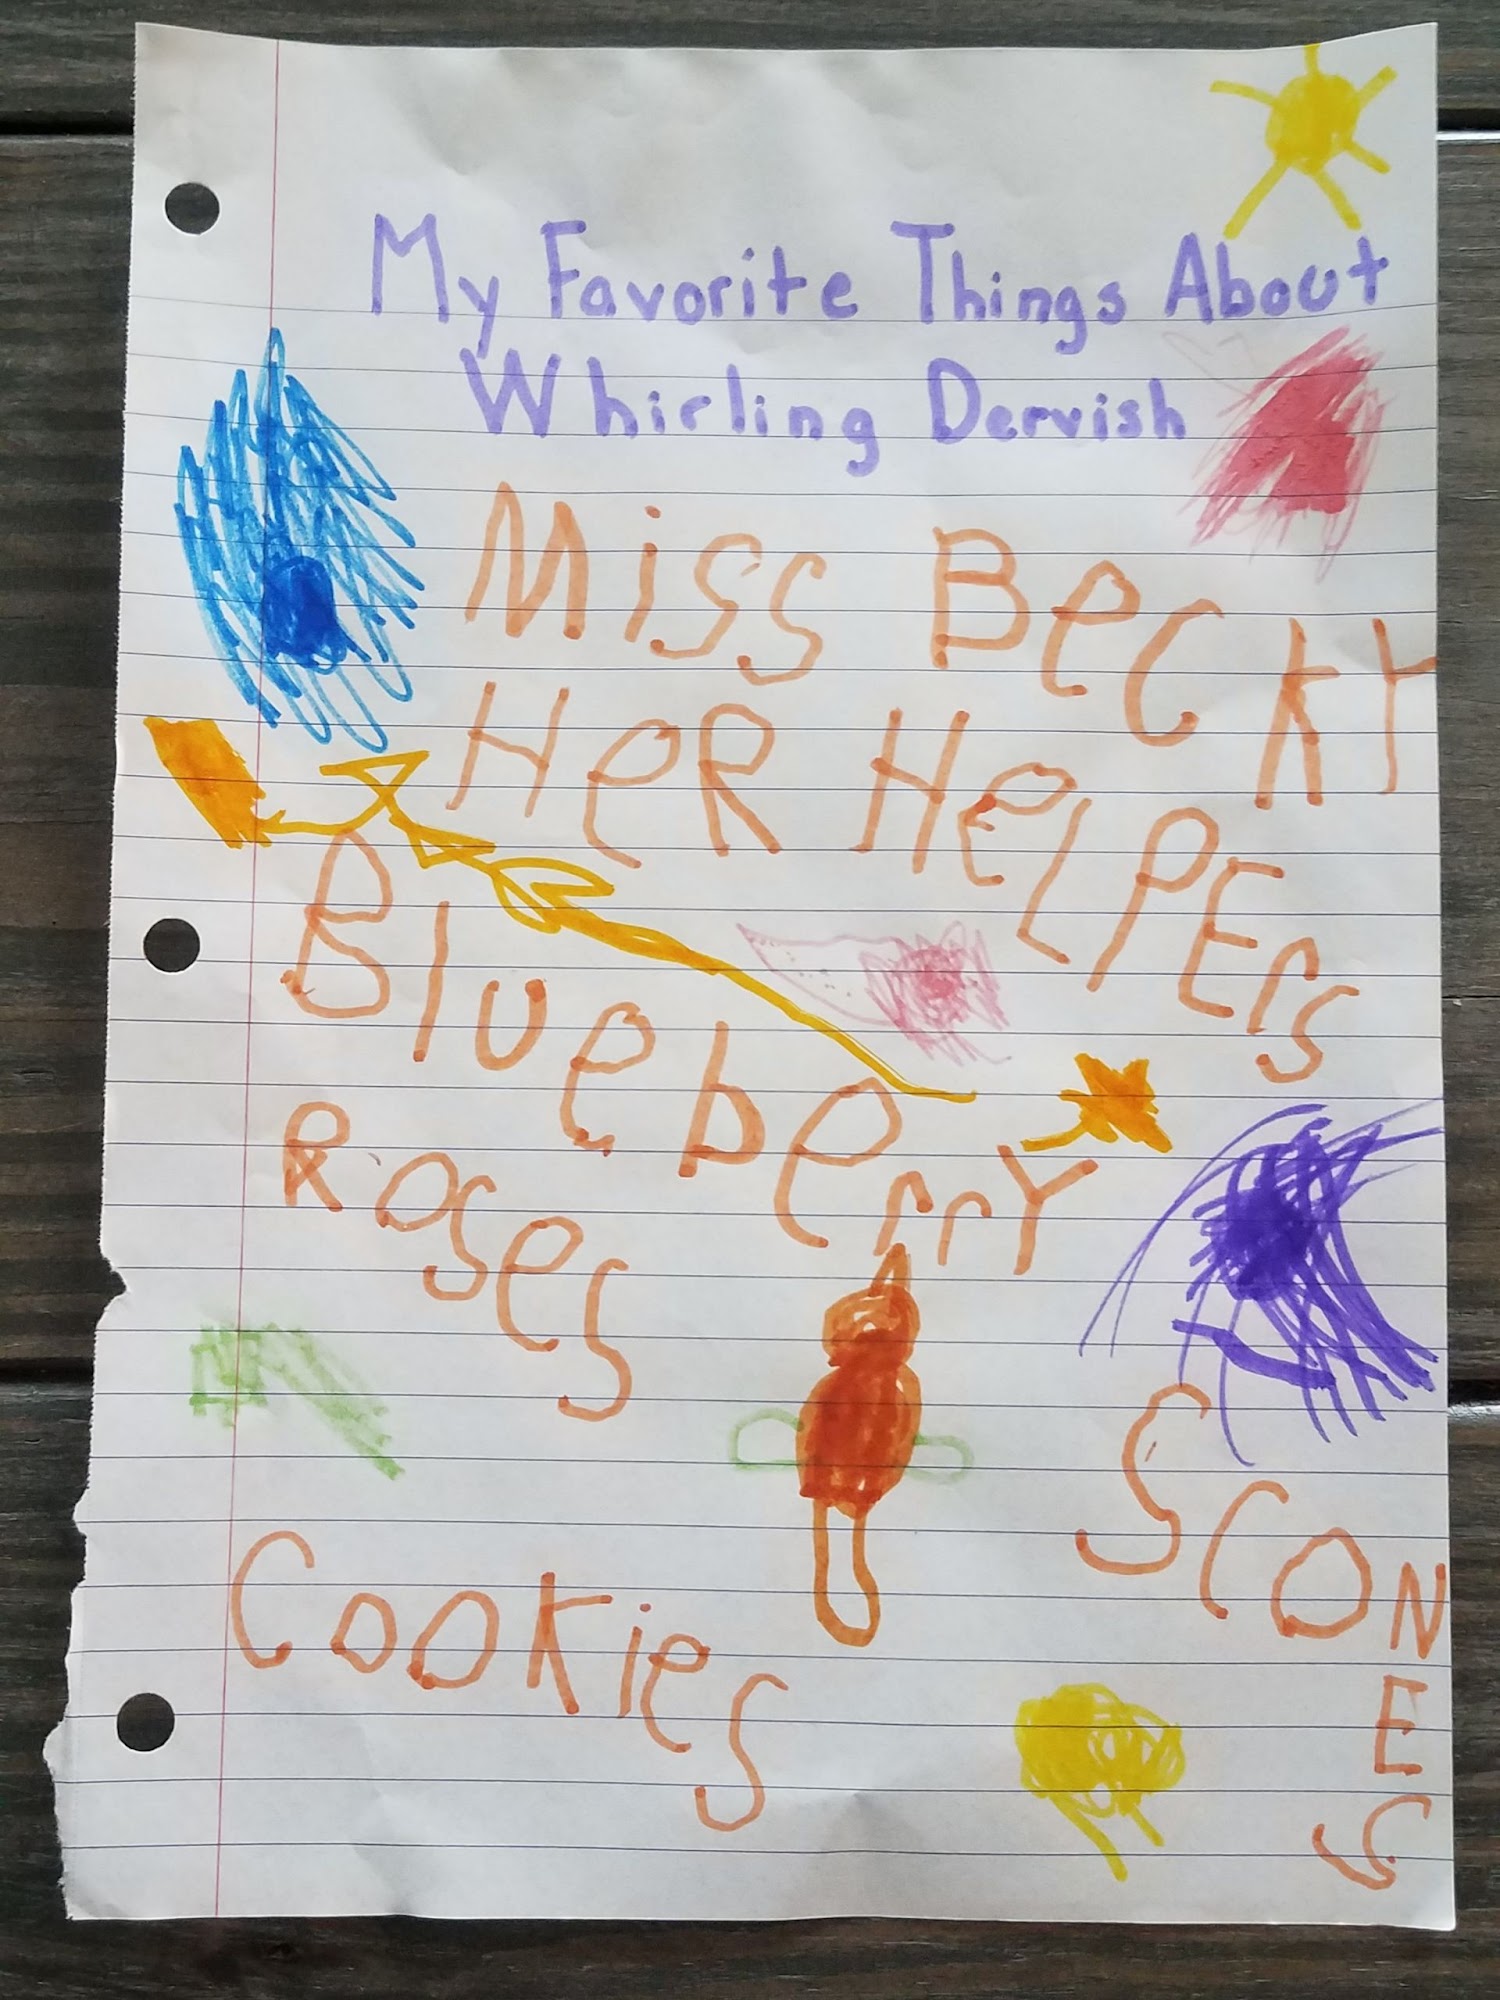 My Favorite Things About
Whirling Dervish
Miss Becky
HeR HeLPErs
BlueberrY
Roses
SCONES
Cookies